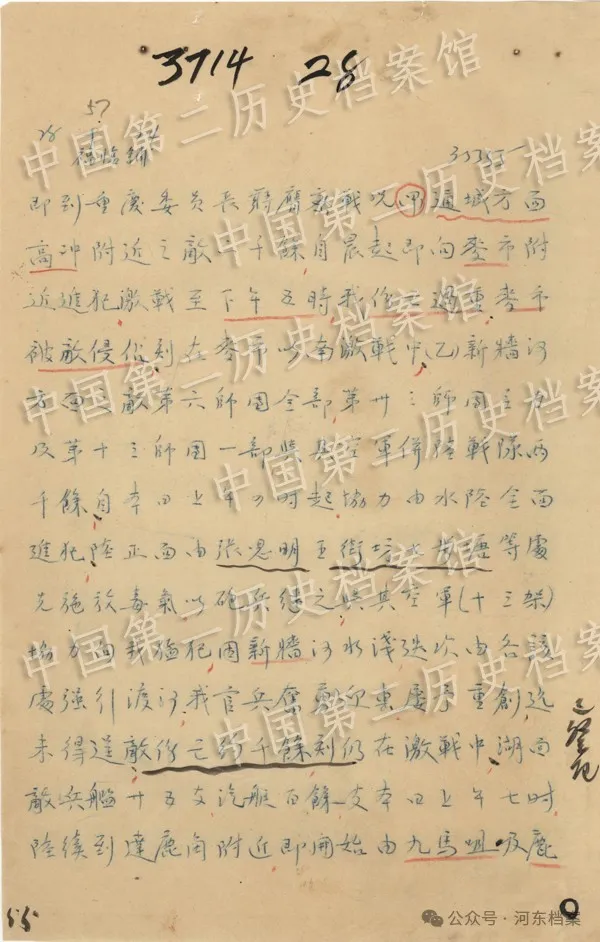 3714 28
57
33355
即到重慶委員長鈞鑒戰况(甲)通城方面
高冲附近之敵二千餘自晨起即向麥市附
近進犯激戰至下午五時我傷亡過重麥市
被敵侵佔刻在麥市以南激戰中(乙)新牆河
方面之敵第六師團全部第卅三師團主力
及第十三師團一部與空軍併陸戰隊兩
千餘自本日上午四時起協力由水陸全面
進犯陸正面由張思明至街坊等處
先施放毒氣以砲兵繼之與其空軍(十三架)
協力向我猛犯因新牆河水淺迭次由各該
處強引渡河我官兵奮勇迎擊屢予重創迄
未得逞敵傷亡約千餘刻仍在激戰中湖面
敵兵艦廿五支汽艇百餘支本日上午七時
陸續到達鹿角附近即開始由九馬咀及鹿
已登記
55
中国第二历史档案馆
公众号·河东档案